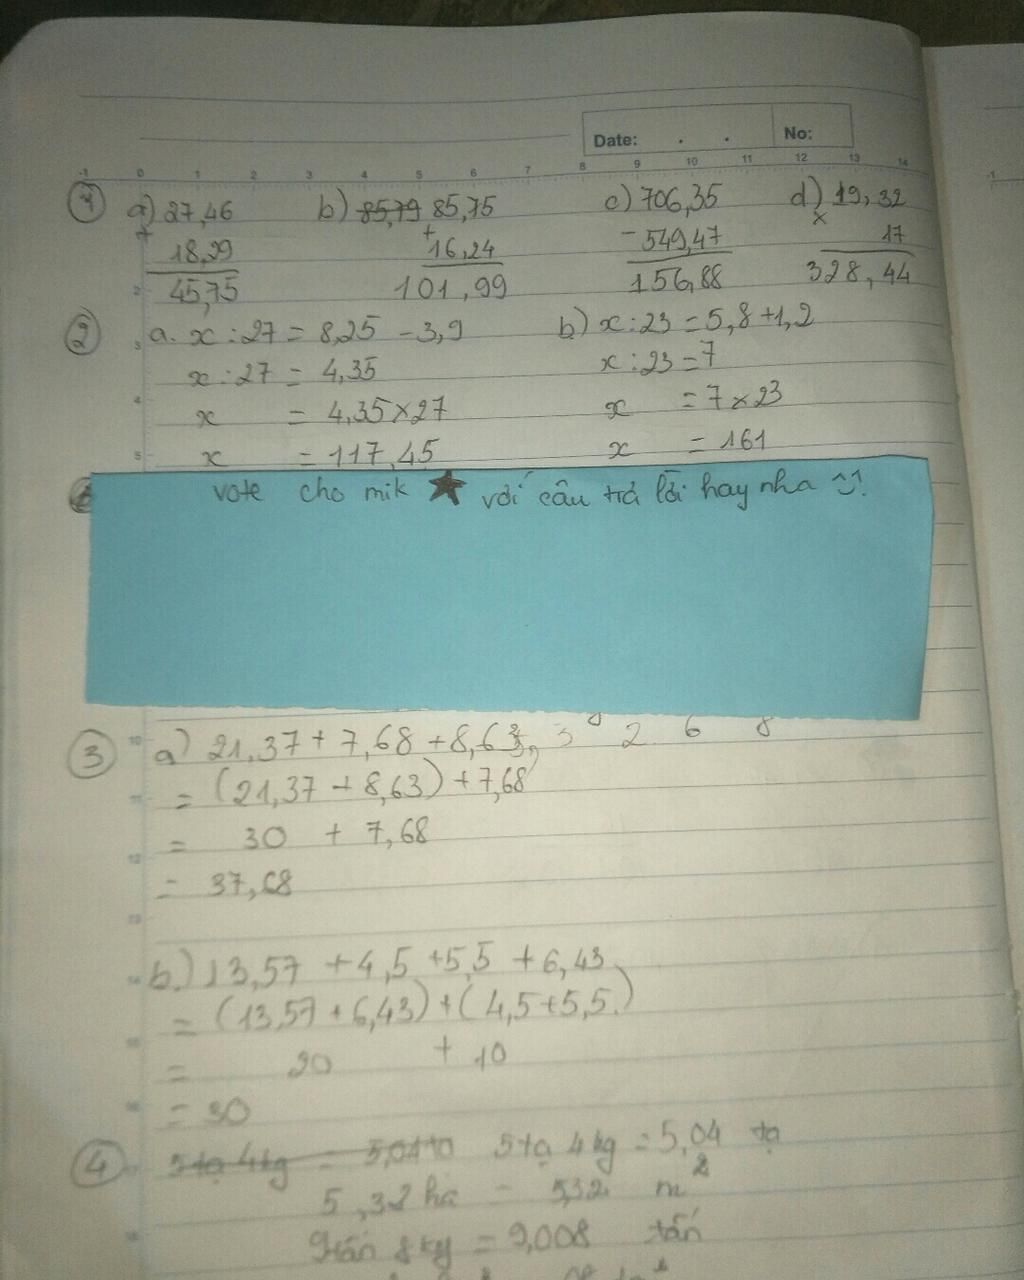 Date: . . No:
-1 0 1 2 3 4 5 6 7 8 9 10 11 12 13 14
1 a) 27,46 b) 85,79 85,75 c) 706,35 d) 19,32
+ 18,29 + 16,24 - 549,47 x 17
45,75 101,99 156,88 328,44
2 a. x : 27 = 8,25 - 3,9 b) x : 23 = 5,8 + 1,2
x : 27 = 4,35 x : 23 = 7
x = 4,35 x 27 x = 7 x 23
x = 117,45 x = 161
vote cho mik ★ với câu trả lời hay nha
3 a) 21,37 + 7,68 + 8,63
= (21,37 + 8,63) + 7,68
= 30 + 7,68
= 37,68
b.) 13,57 + 4,5 + 5,5 + 6,43
= (13,57 + 6,43) + (4,5 + 5,5)
= 20 + 10
= 30
4 5 tạ 4 kg = 5,04 tạ
5,32 ha = 532 m²
9 tấn 8 kg = 9,008 tấn